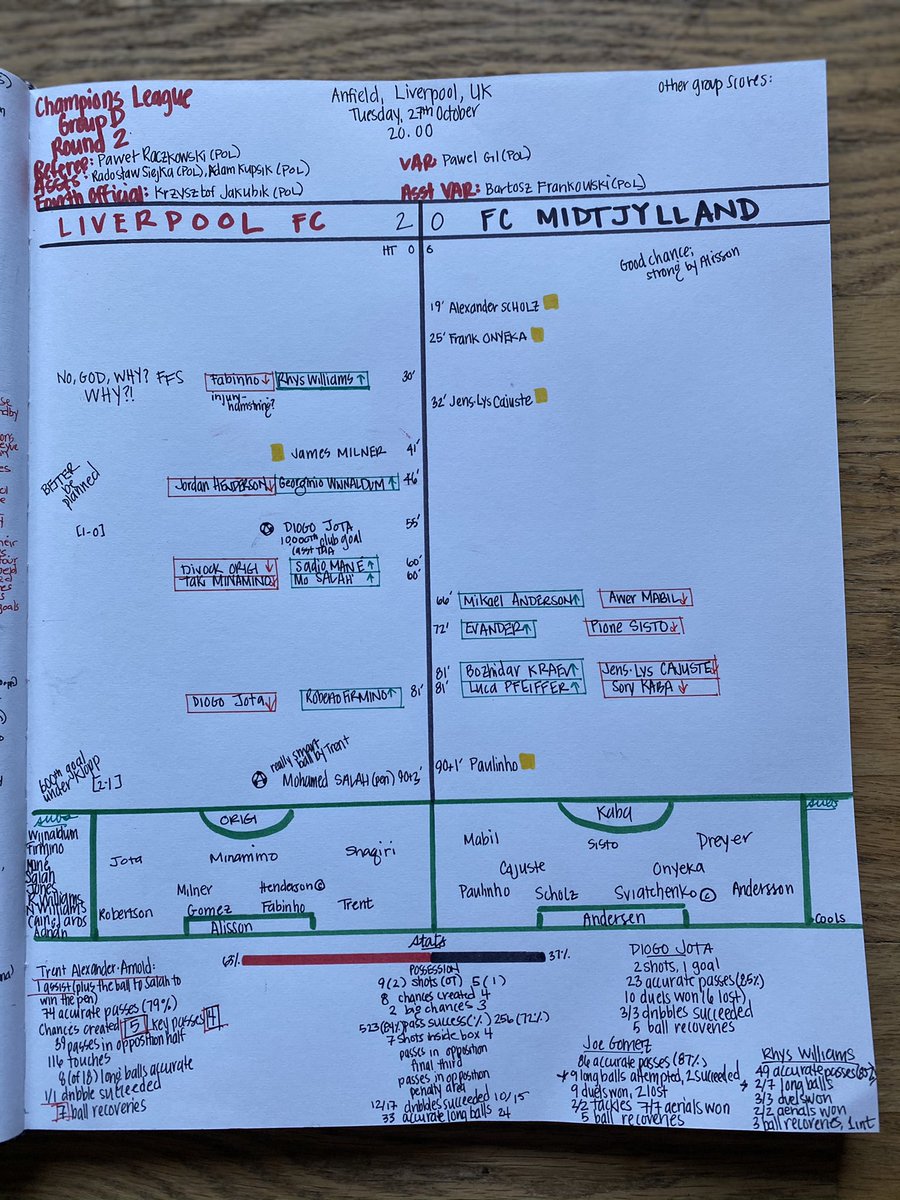 Champions League
Group D
Round 2
Anfield, Liverpool, UK
Tuesday, 27th October
20.00
other group scores:
Referee: Paweł Raczkowski (POL)
Assts: Radosław Siejka (POL), Adam Kupsik (POL)
Fourth Official: Krzysztof Jakubik (POL)
VAR: Pawel Gil (POL)
Asst VAR: Bartosz Frankowski (POL)
LIVERPOOL FC 2 0 FC MIDTJYLLAND
HT 0 6
Good chance;
strong by Alisson
19' Alexander SCHOLZ
25' Frank ONYEKA
NO, GOD, WHY? FFS
WHY?!
Fabinho↓ Rhys Williams↑ 30'
injury-
hamstring?
32' Jens-Lys Cajuste
James MILNER 41'
BETTER
be
planned
Jordan HENDERSON↓ Georginio WIJNALDUM↑ 46'
[1-0]
DIOGO JOTA 55'
10,000th club goal
(asst TAA
Divock ORIGI↓ Sadio MANÉ↑ 60'
Taki MINAMINO↓ Mo SALAH↑ 60'
66' Mikael ANDERSON↑ Awer MABIL↓
72' EVANDER↑ Pione SISTO↓
81' Bozhidar KRAEV↑ Jens-Lys CAJUSTE↓
81' Luca PFEIFFER↑ Sory KABA↓
DIOGO Jota↓ Roberto FIRMINO↑ 81'
really smart
ball by Trent
600th goal
under Klopp
[2-1]
Mohamed SALAH (pen) 90+3'
90+1' Paulinho
SUBS
Wijnaldum
Firmino
Mané
Salah
Jones
R Williams
N Williams
Cain, Jaros
Adrian
ORIGI
Jota Minamino Shaqiri
Milner Henderson©
Robertson Gomez Fabinho Trent
Alisson
Kaba
Mabil Sisto Dreyer
Cajuste Onyeka
Paulinho Scholz Sviatchenko © Andersson
Andersen
SUBS
Cools
Stats
65% 37%
POSSESSION
9(2) shots (OT) 5(1)
8 chances created 4
2 big chances 3
523 (84%) pass success (%) 256 (72%)
7 shots inside box 4
passes in opposition
final third
passes in opposition
penalty area
12/17 dribbles succeeded 10/15
33 accurate long balls 24
Trent Alexander-Arnold:
1 assist (plus the ball to Salah to
win the pen)
74 accurate passes (79%)
Chances created 5 key passes 4
39 passes in opposition half
116 touches
8 (of 18) long balls accurate
1/1 dribble succeeded
7 ball recoveries
DIOGO JOTA
2 shots, 1 goal
23 accurate passes (85%)
10 duels won (6 lost)
3/3 dribbles succeeded
5 ball recoveries
Joe Gomez
86 accurate passes (87%)
9 long balls attempted, 2 succeeded
9 duels won, 2 lost
2/2 tackles 7/7 aerials won
5 ball recoveries
Rhys Williams
49 accurate passes
2/7 long balls
3/3 duels won
2/2 aerials won
3 ball recoveries, 1 int